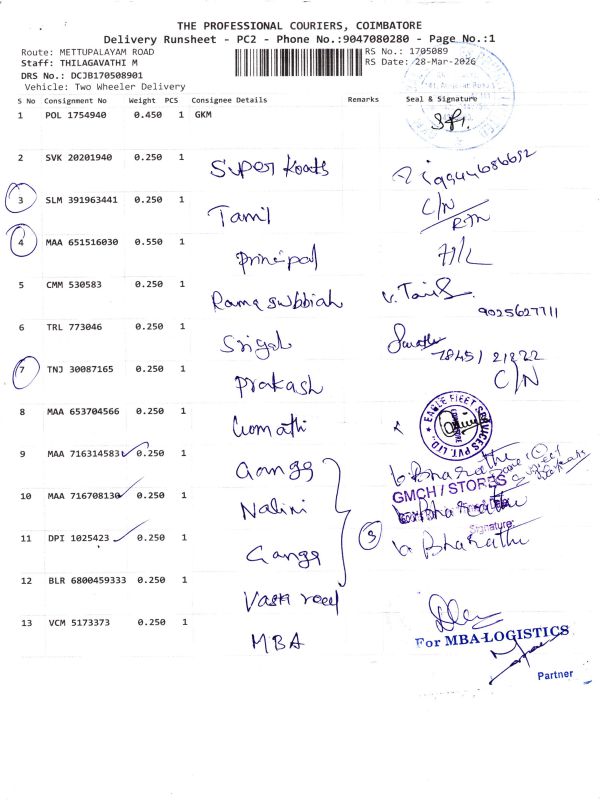 THE PROFESSIONAL COURIERS, COIMBATORE
Delivery Runsheet - PC2 - Phone No.:9047080280 - Page No.:1
Route: METTUPALAYAM ROAD RS No.: 1705089
Staff: THILAGAVATHI M RS Date: 28-Mar-2026
DRS No.: DCJB170508901
Vehicle: Two Wheeler Delivery
S No Consignment No Weight PCS Consignee Details Remarks Seal & Signature
1 POL 1754940 0.450 1 GKM
2 SVK 20201940 0.250 1 Super Koats 9944686652
3 SLM 391963441 0.250 1 Tamil C/N
RTN
4 MAA 651516030 0.550 1 Principal
5 CMM 530583 0.250 1 Rama subbiah
9025627711
6 TRL 773046 0.250 1
7 TNJ 30087165 0.250 1 Prakash C/N
8 MAA 653704566 0.250 1 Gomathi
EAGLE FLEET SERVICES PVT. LTD.
9 MAA 716314583 0.250 1 Ganga b. Bharathi
GMCH / STORES
10 MAA 716708130 0.250 1 Nalini b. Bharathi
Signature:
11 DPI 1025423 0.250 1 Ganga b. Bharathi
3
12 BLR 6800459333 0.250 1
13 VCM 5173373 0.250 1 MBA
For MBA LOGISTICS
Partner